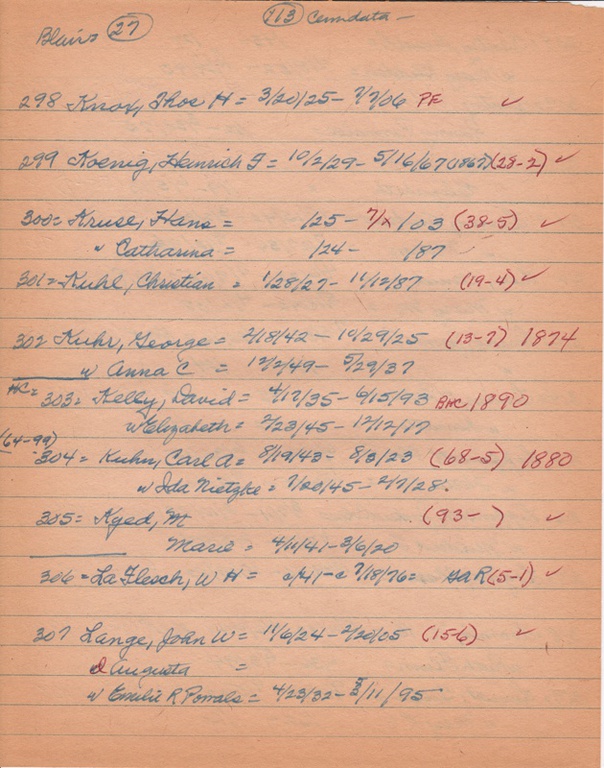 Blairs 27 113 Cemdata -
298 Knox, Thos H = 3/20/25 - 7/7/06 PF ✓
299 Koenig, Heinrich F = 10/2/29 - 5/16/67 (1867) (28-2) ✓
300 = Kruse, Hans = /25 - 7/x/03 (38-5) ✓
" Catharina = /24 - /87
301 = Kuhl, Christian = 1/28/27 - 11/12/87 (19-4) ✓
302 Kuhr, George = 2/18/42 - 10/29/25 (13-7) 1874
w Anna C = 12/2/49 - 5/29/37
HC = 303 = Kelly, David = 4/17/35 - 6/15/93 BHC 1890
w Elizabeth = 2/23/45 - 12/12/17
(64-99)
304 = Kuhn, Carl A = 8/19/43 - 8/3/23 (68-5) 1880
w Ida Nietzke = 7/20/45 - 2/7/28.
305 = Kyed, M (93- ) ✓
Marie = 4/11/41 - 3/6/20
306 = La Flesch, W H = c/41 - c 7/18/76 = (5-1) ✓
307 Lange, John W = 11/6/24 - 2/20/05 (15-6) ✓
d Augusta =
w Emilie R = 4/23/32 - /11/95